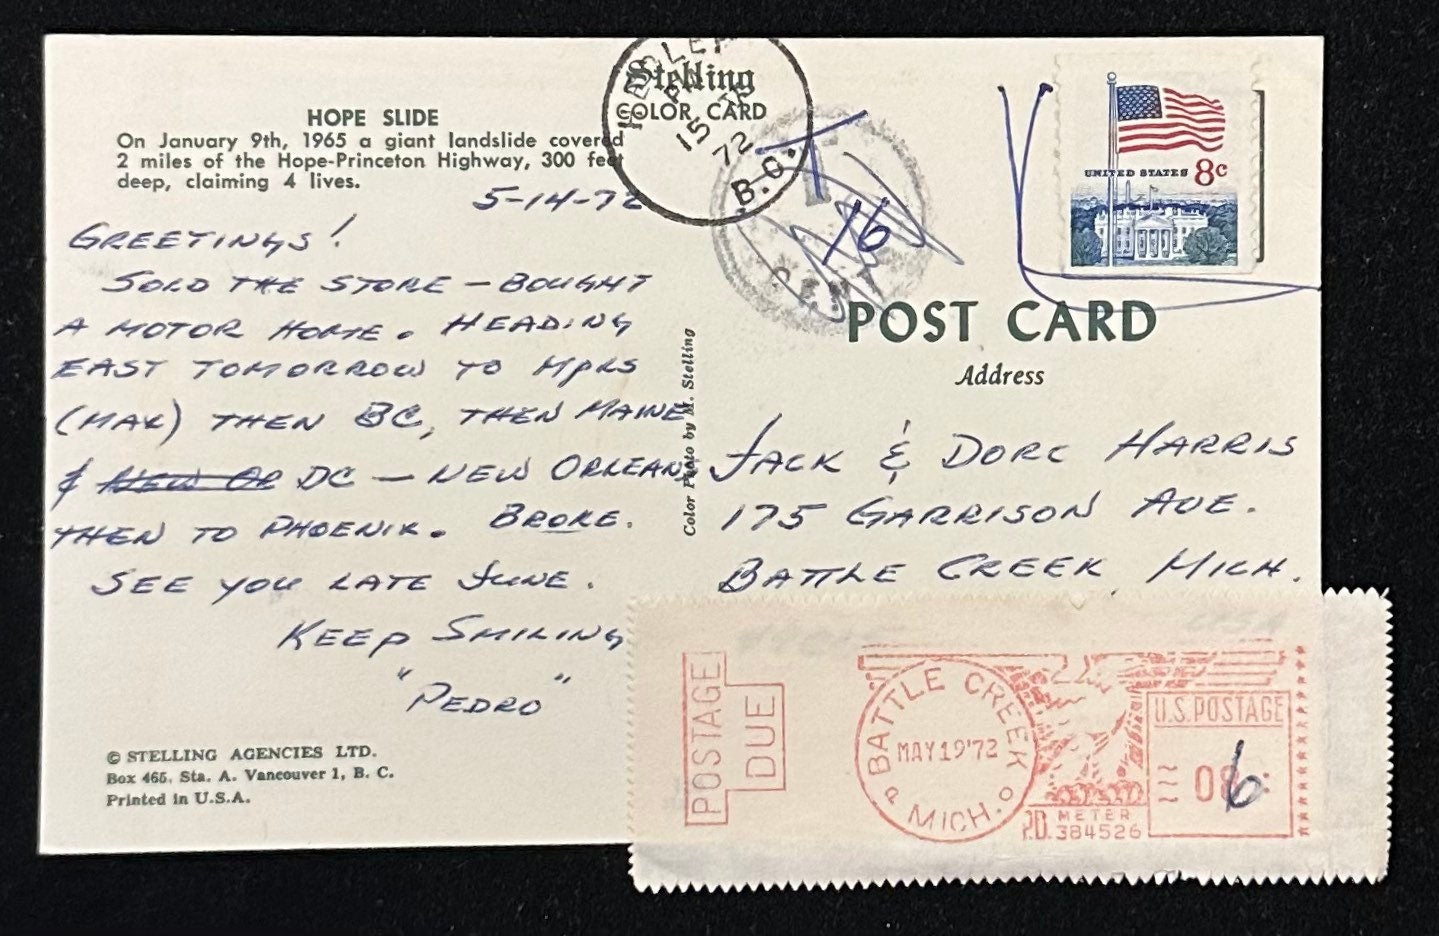 HOPE SLIDE
On January 9th, 1965 a giant landslide covered
2 miles of the Hope-Princeton Highway, 300 feet
deep, claiming 4 lives.
5-14-72
GREETINGS!
SOLD THE STORE – BOUGHT
A MOTOR HOME. HEADING
EAST TOMORROW TO MPLS
(MAX) THEN BC, THEN MAINE
& NEW OR DC – NEW ORLEANS
THEN TO PHOENIX. BROKE.
SEE YOU LATE JUNE.
KEEP SMILING
"PEDRO"
© STELLING AGENCIES LTD.
Box 465, Sta. A. Vancouver 1, B. C.
Printed in U.S.A.
Color Photo by M. Stelling
Stelling
COLOR CARD
PM
15
72
B.C.
T
16
UNITED STATES 8c
POST CARD
Address
JACK & DORE HARRIS
175 GARRISON AVE.
BATTLE CREEK, MICH.
POSTAGE
DUE
BATTLE CREEK
MAY 19'72
MICH.
U.S. POSTAGE
6
P.D. METER
384526